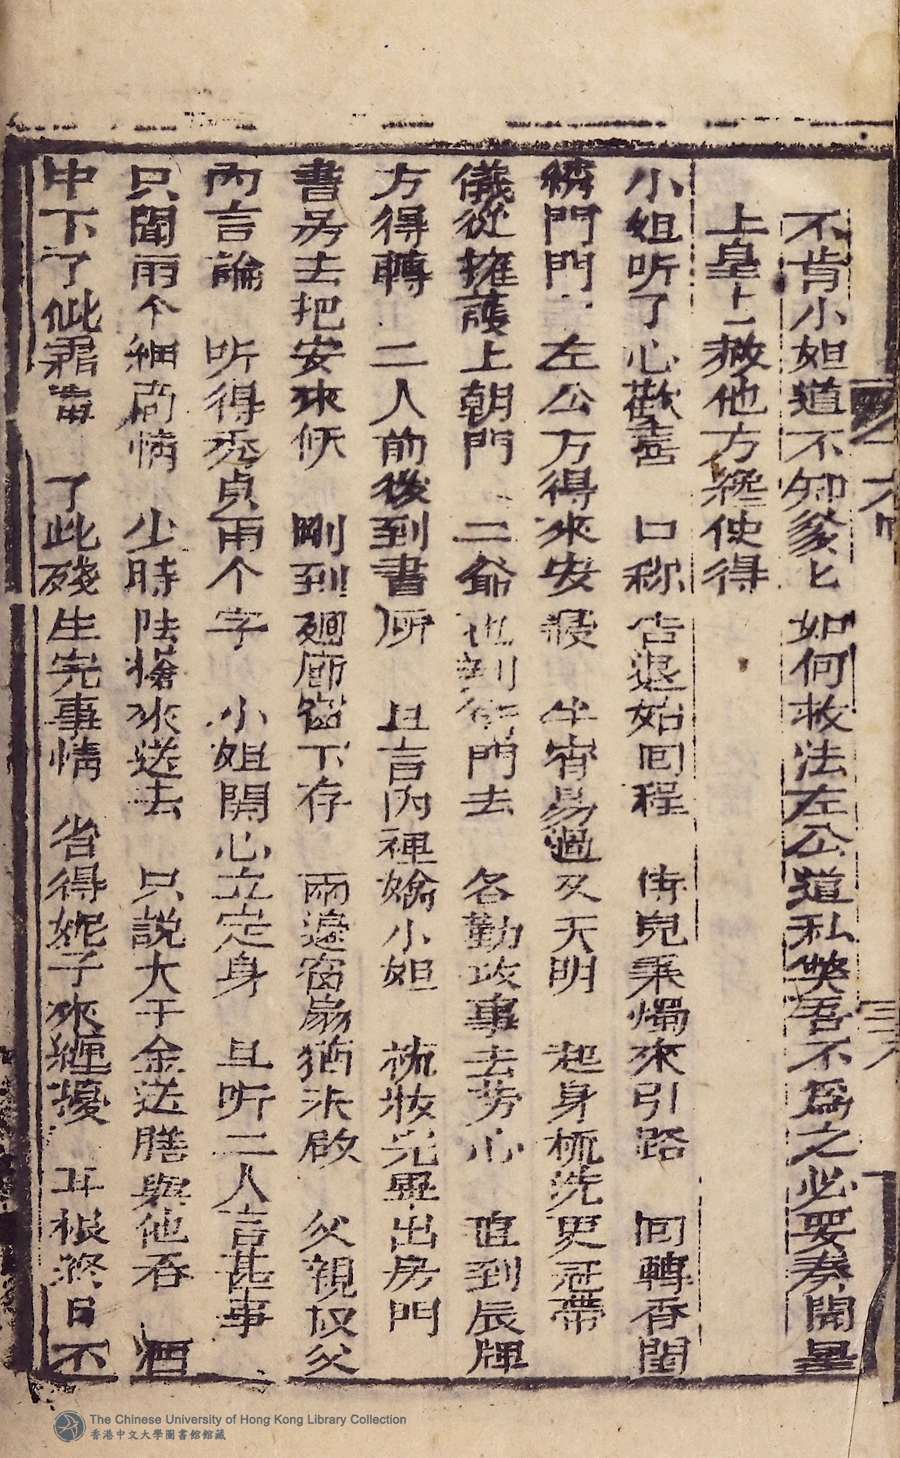 不肯小姐道不知爹匕如何救法左公道私與吾不爲之必要奏聞皇
上皇上赦他方纔使得
小姐听了心歡喜 口称告退始回程 侍兒秉燭來引路 回轉香閨
綉門門 左公方得來安寢 半宵易過又天明 起身梳洗更冠帶
儀從擁護上朝門 二爺也到衙門去 各勤政事去劳心 直到辰牌
方得轉 二人前後到書所 且言內裡嬌小姐 梳妝完畢出房門
書房去把安來候 剛到廻廊窗下存 兩邊窗扇猶未啟 父親叔父
內言論 听得秀貞兩个字 小姐閗心立定身 且听二人言甚事
只聞兩个細啇情 少時陆續來送去 只說大千金送膳與他吞 酒
中下了砒霜毒 了此殘生完事情 省得妮子來纏擾 耳根終日不
The Chinese University of Hong Kong Library Collection
香港中文大學圖書館館藏